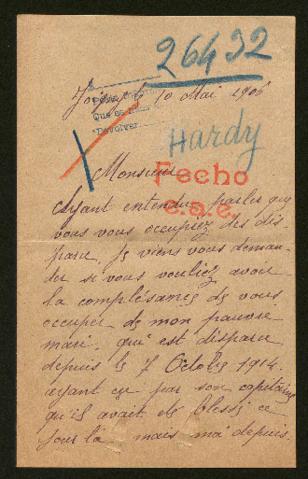 26432
10 Mai 1906
Que
Devolver
Hardy
Monsieur
Fecho
e.a.e.
Ayant entendu parler que
vous vous occupiez des dis
paru, Je viens vous deman
der si vous vouliez avoir
la complésance de vous
occuper de mon pauvre
mari, qui est disparu
depuis le 7 Octobre 1914.
ayant eu par son capitaine
qu'il avait été blessé ce
jour là mais moi depuis